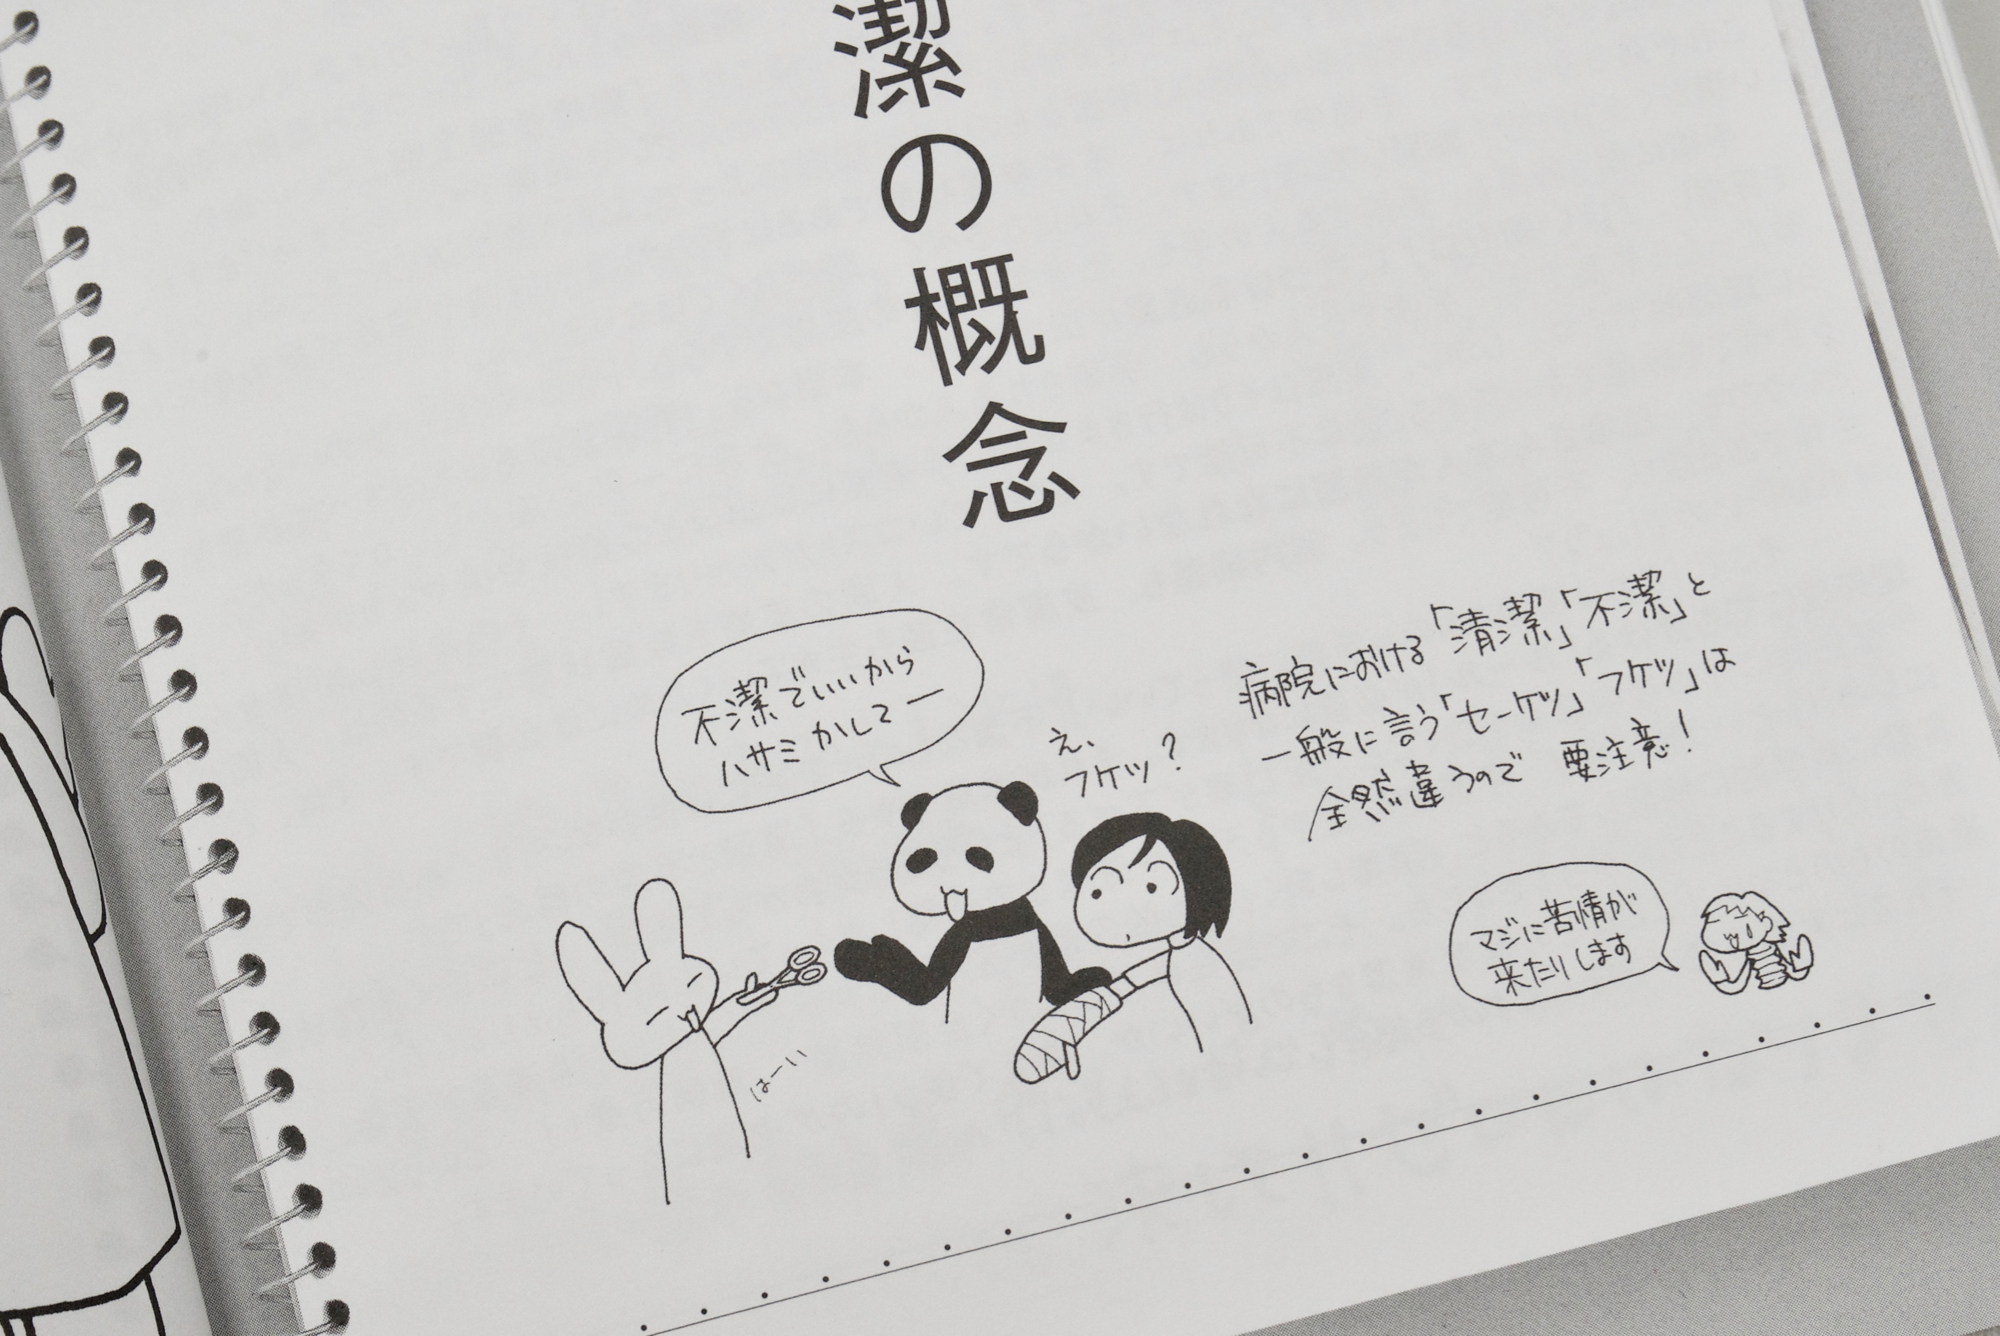 潔の概念
不潔でいいから
ハサミかしてー
え、
フケツ？
はーい
病院における「清潔」「不潔」と
一般に言う「セーケツ」「フケツ」は
全然違うので 要注意！
マジに苦情が
来たりします